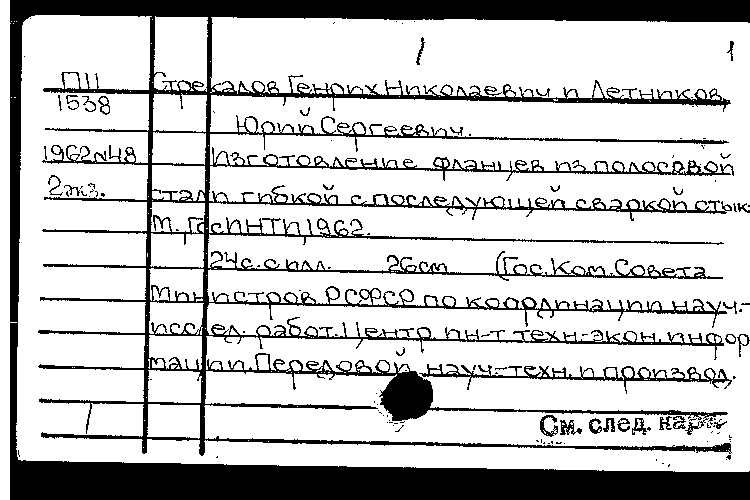 1 1
П11 Стрекалов, Генрих Николаевич и Летников,
1538
Юрий Сергеевич.
1962№48 Изготовление фланцев из полосовой
2экз. стали гибкой с последующей сваркой стык.
М., ГосИНТИ, 1962.
24с. с илл. 26см (Гос. Ком. Совета
Министров РСФСР по координации науч.-
исслед. работ. Центр. ин-т техн.-экон. инфор
мации. Передовой науч.-техн. и производ.
См. след. карт